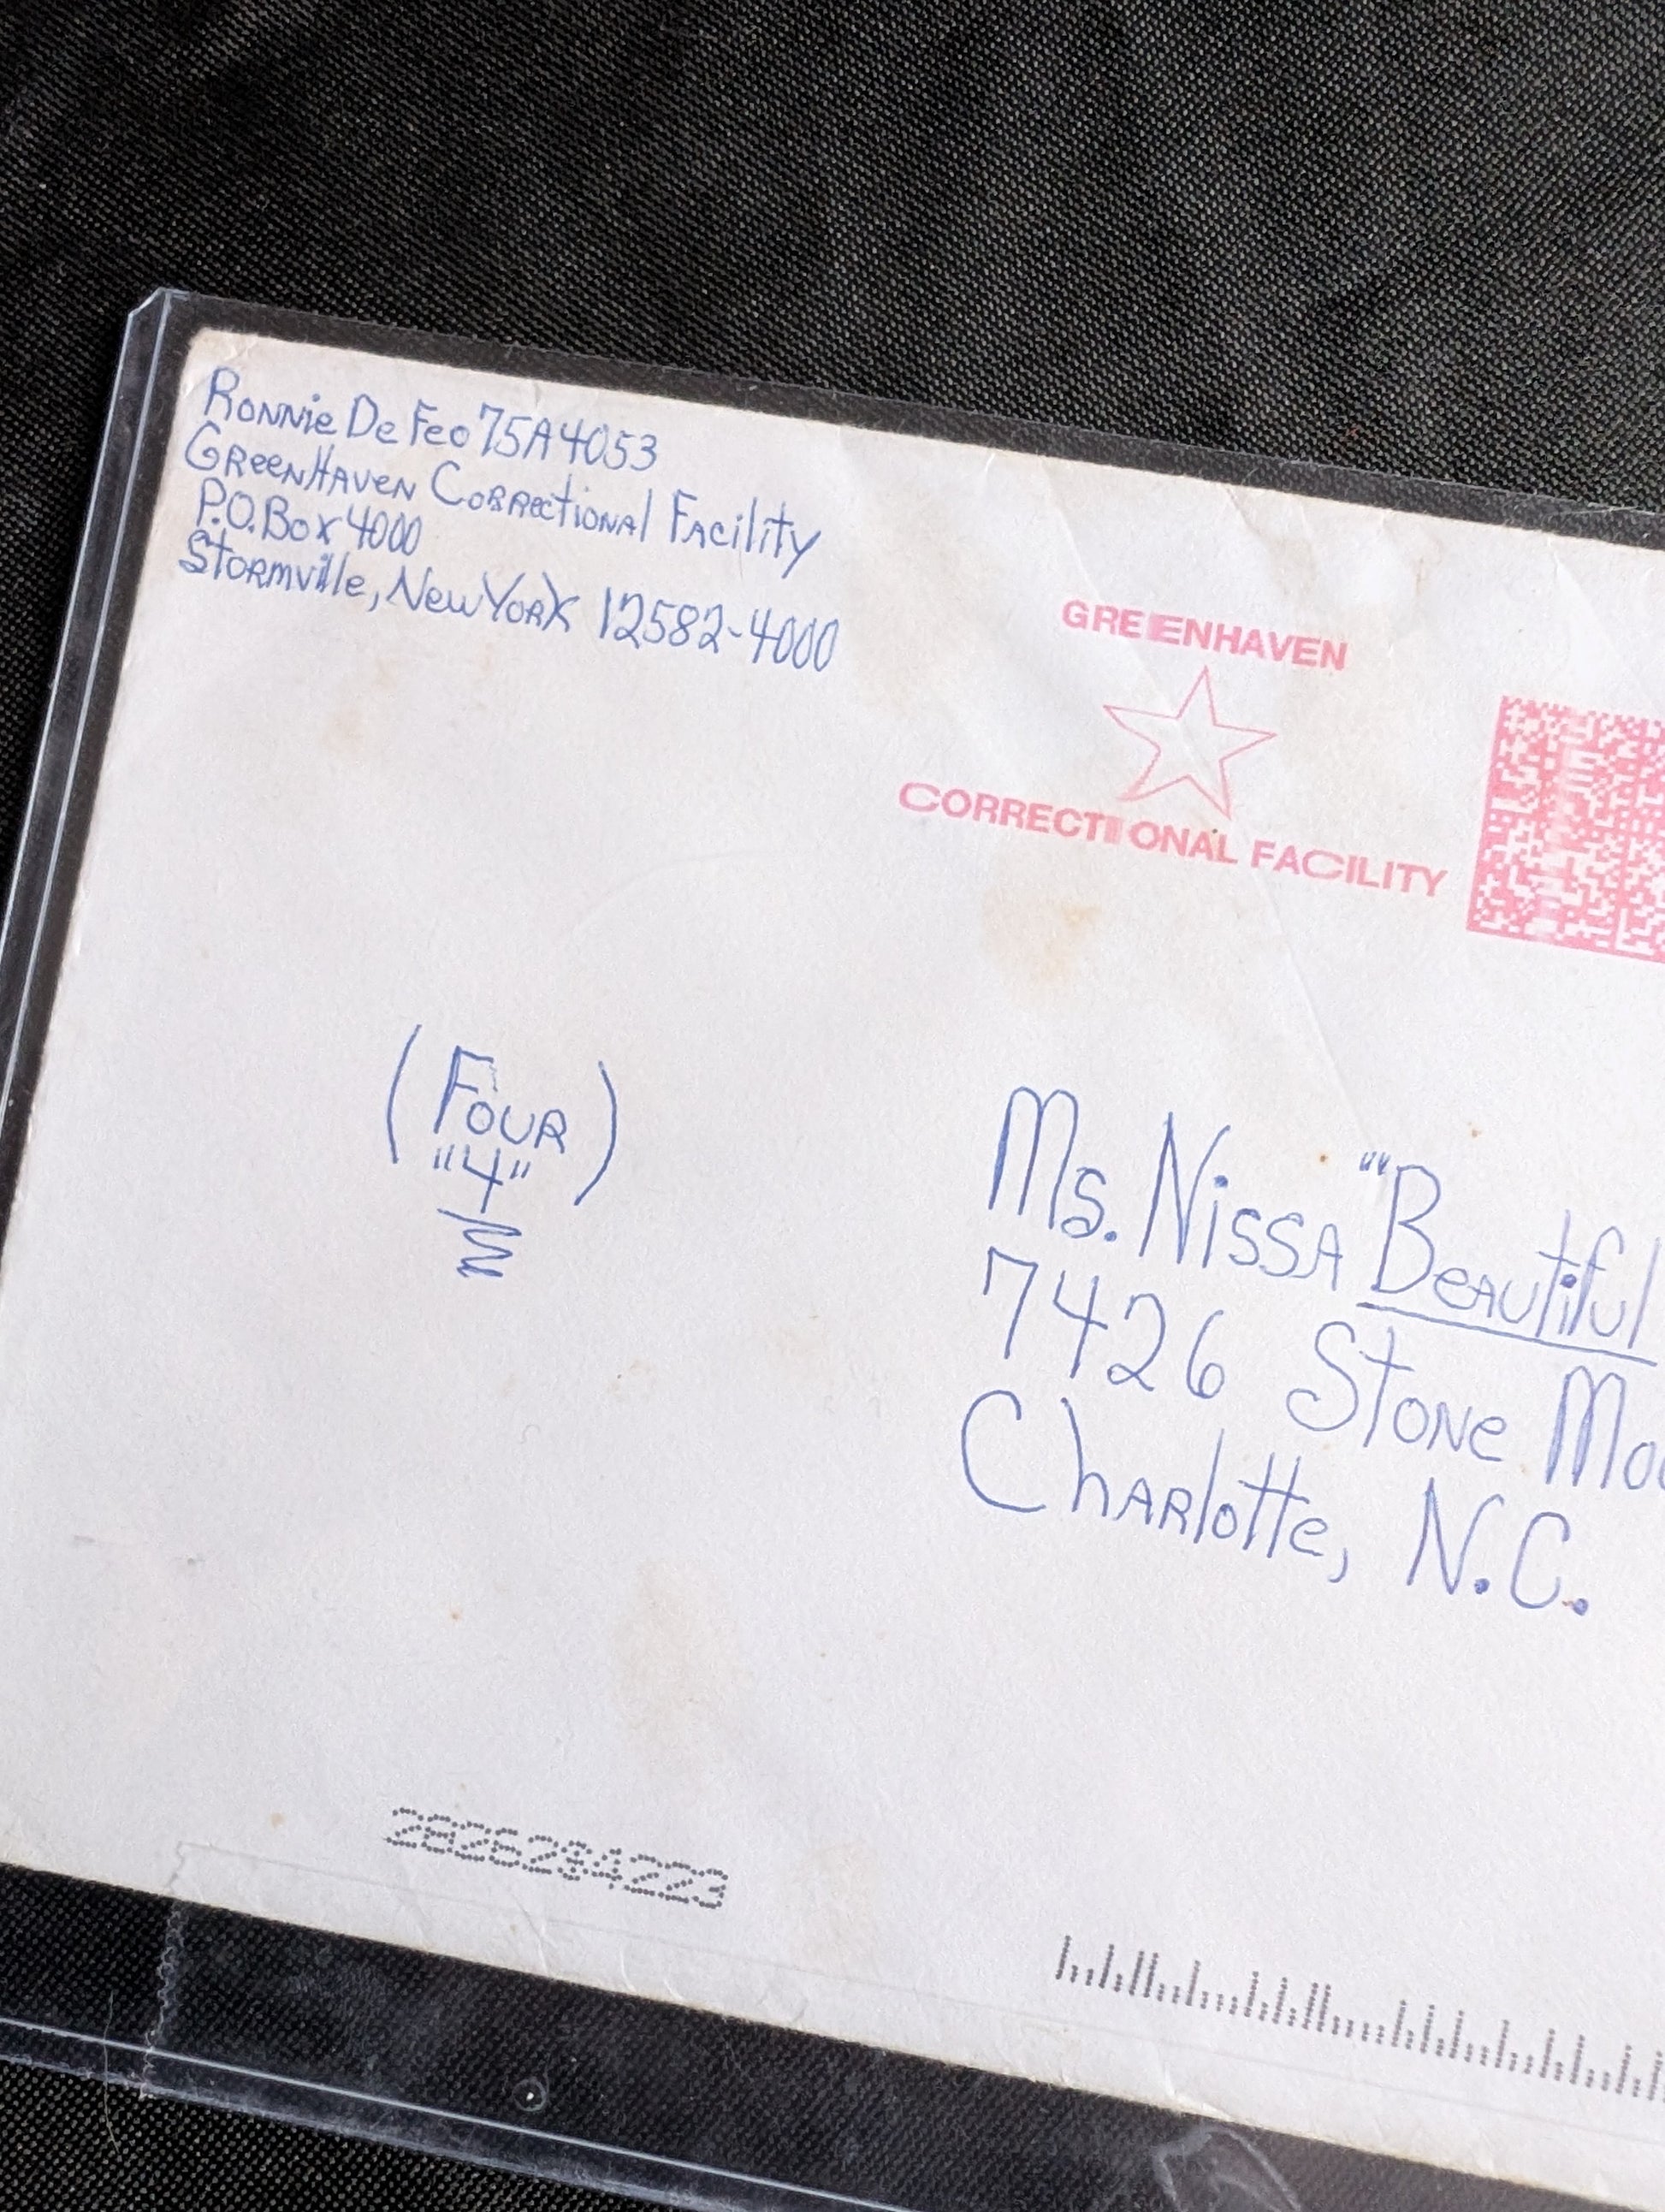 Ronnie De Feo 75A4053
GreenHaven Correctional Facility
P.O. Box 4000
Stormville, New York 12582-4000
GREENHAVEN
CORRECTIONAL FACILITY
(Four)
"4"
Ms. Nissa "'Beautiful
7426 Stone
Charlotte, N.C.